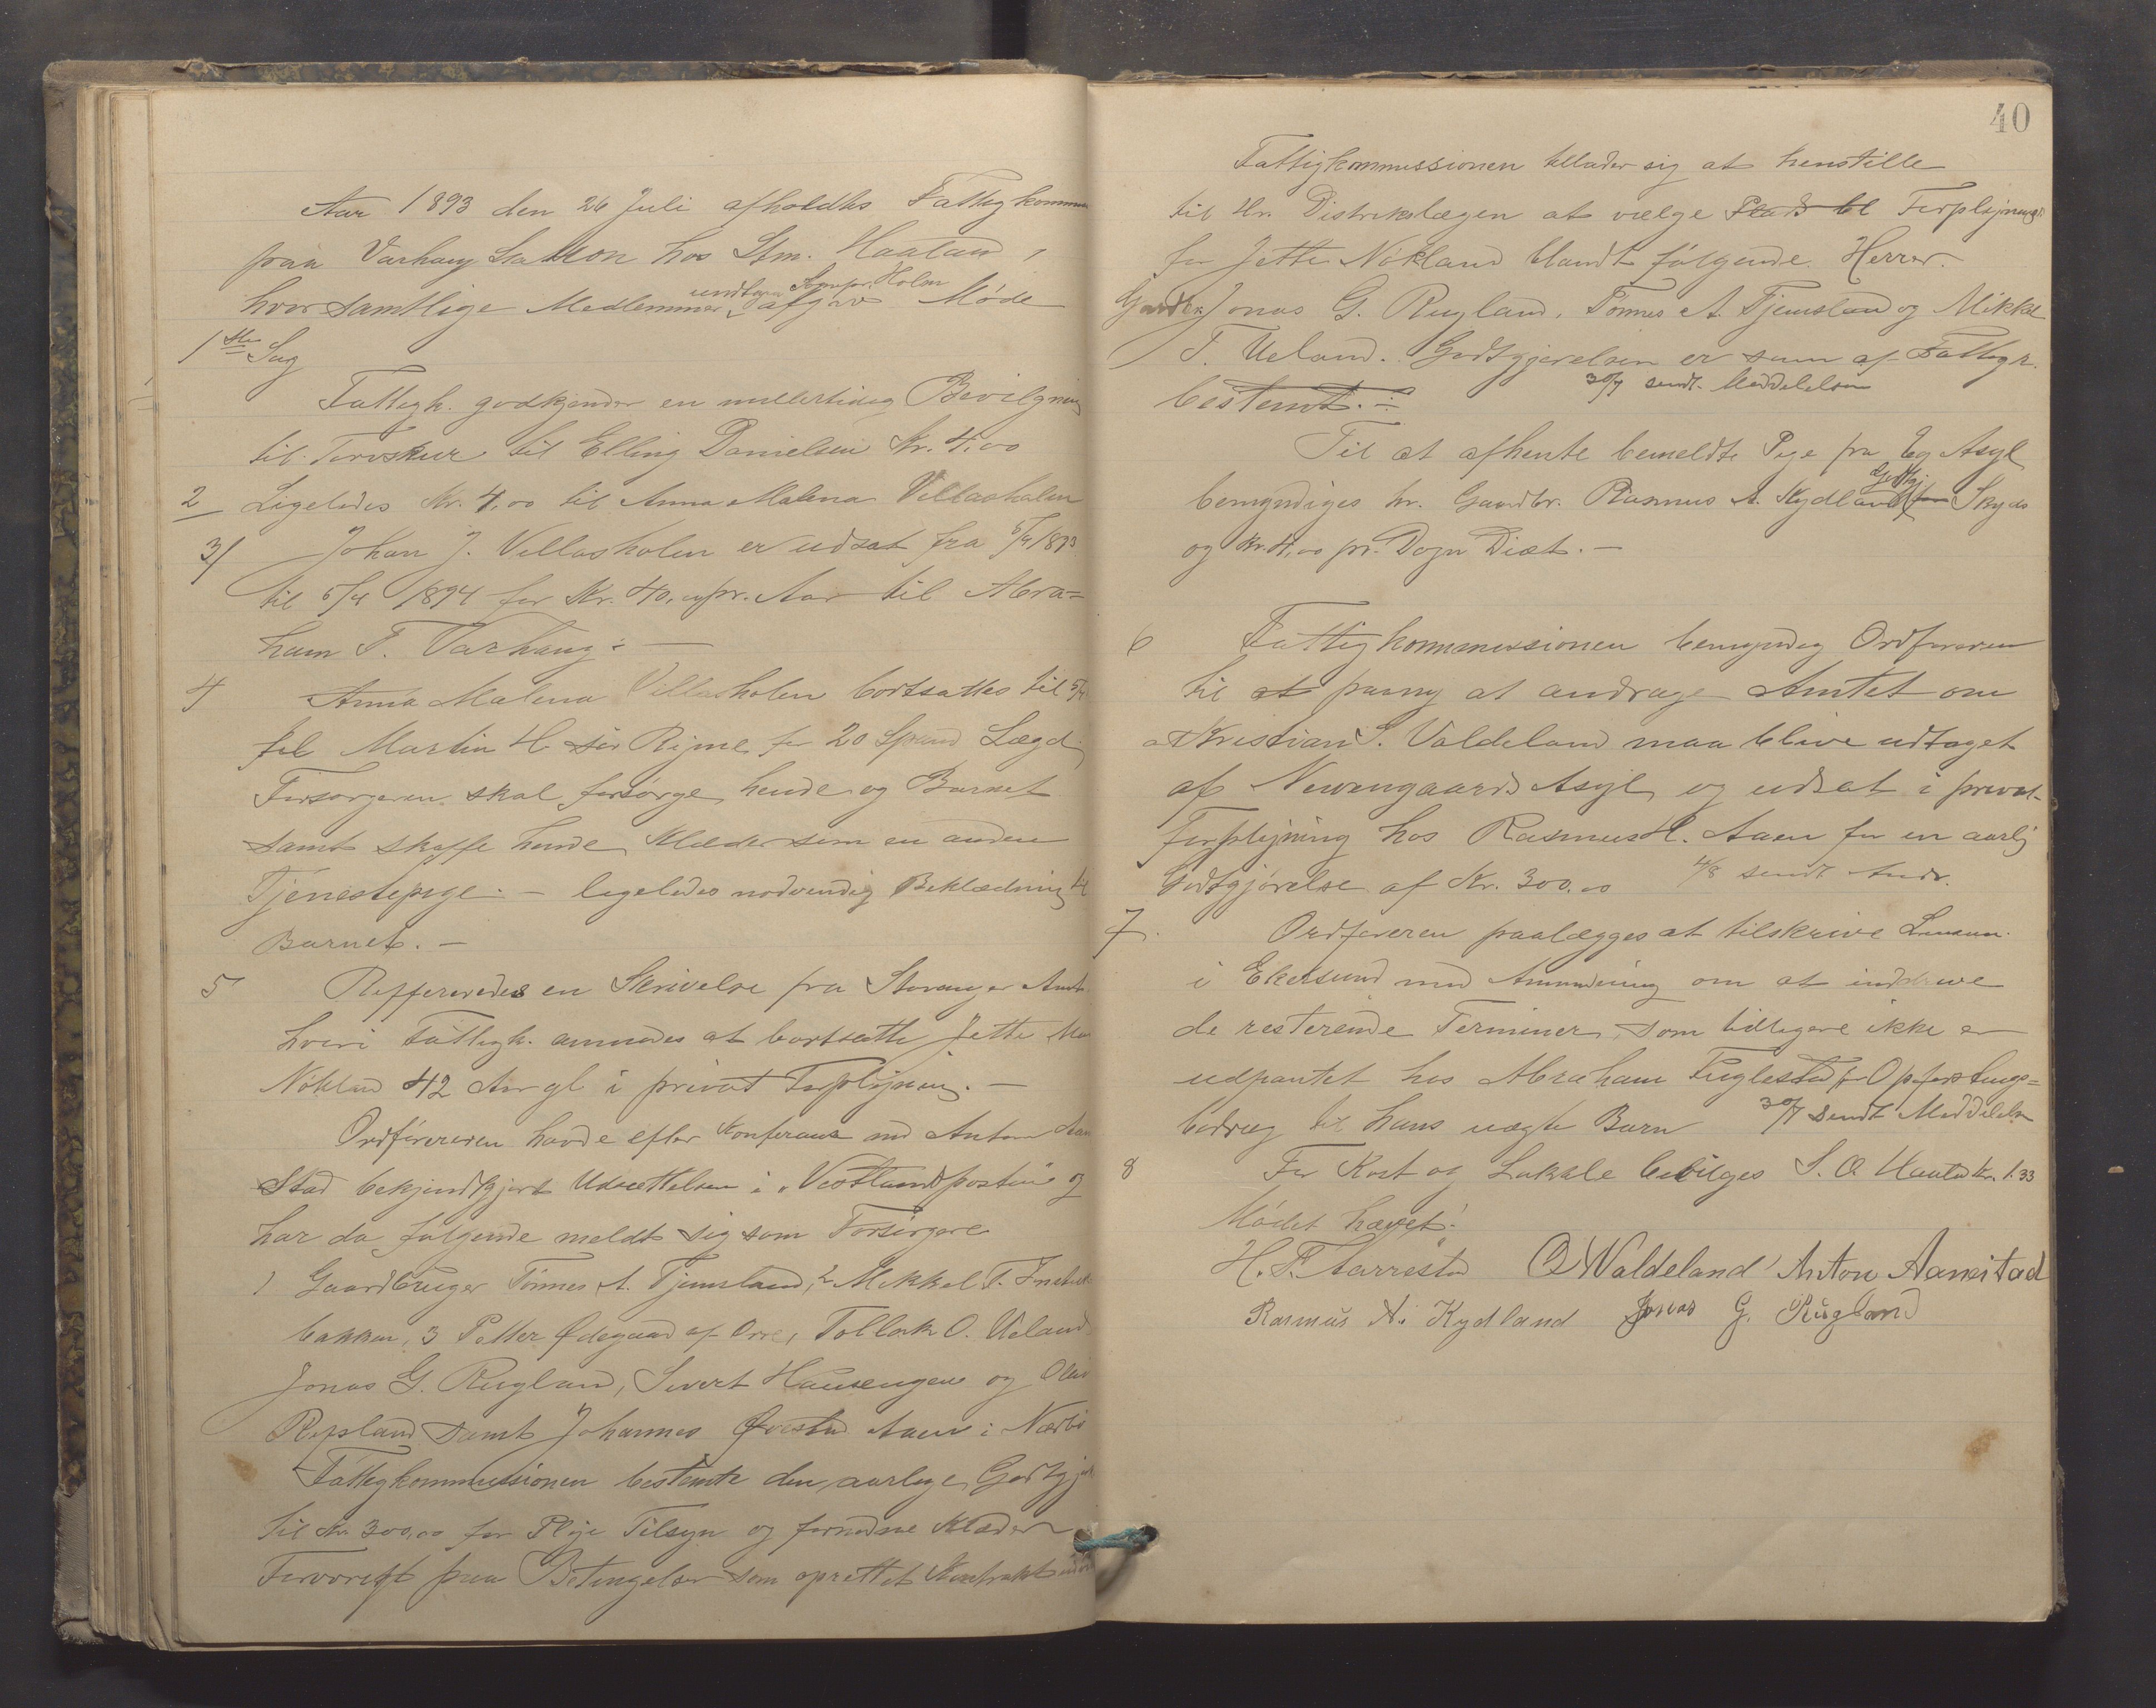 Aar 1893 den 26 Juli afholdtes Fattigkomm
paa Varhaug Station hos Stm. Haaland,
undtagen Sognepr. Holm
hvor samtlige Medlemmer afgav Møde
1ste Sag
Fattigk. godkjender en midlertidig Bevilgning
til Torvskur til Elling Danielsen Kr. 4,00
2 Ligeledes Kr. 4,00 til Anna Malena Villasholen
3/ Johan J. Villasholen er udsat fra 5/4 1893
til 5/4 1894 for Kr. 40,00 pr. Aar til Abra=
ham T. Varhaug.—
4 Anna Malena Villasholen bortsattes til 5/4
til Martin H. Rijme for 20 Spand Lægd
Forsørgeren skal forsørge hende og Barnet
samt skaffe hende Klæder som en anden
Tjenestepige.— ligeledes nødvendig Beklædning til
Barnet.—
5 Reffereredes en Skrivelse fra Stavanger Amt
hvori Fattigk. anmodes at bortsætte Jette
Nökland 42 Aar gl i privat Forplejning.—
Ordføreren havde efter Konferanse med Anton Aan
stad bekjendtgjort Udsættelsen i "Vestlandsposten" og
har da følgende meldt sig som Forsörgere
1 Gaardbruger Tönnes A. Tjemsland, 2 Mikkel T.
bakken, 3 Petter Ødegaard af Orre, Tollak O. Ueland
Jonas G. Rugland, Sivert Haugengen og Olav
Repsland samt Johannes Aaen i Nærbö
Fattigkommissionen bestemte den aarlige Godtgj
til Kr. 300,00 for Pleje Tilsyn og fornødne Klæder
Forøvrigt paa Betingelser som oprettet Kontrakt
40
Fattigkommissionen tillader sig at henstille
til Hr. Distriktslægen at vælge Plads til Forplejning
for Jette Nökland blandt følgende Herrer.
Gaardbr. Jonas G. Rugland, Tönnes A. Tjemsland og Mikkel
T. Ueland. Godtgjørelsen er som af Fattigk.
bestemt.— 30/7 sendt Meddelelse
Til at afhente bemeldte Pige fra Eg Asyl
Godtgj.
bemyndiges hr. Gaardbr. Rasmus A. Kydland for Skyds
og Kr. 4,00 pr. Døgn Diæt.—
6 Fattigkommissionen bemyndig Ordføreren
til at paany at andrage Amtet om
at Kristian S. Valdeland maa blive udtaget
af Nevengaards Asyl og udsat i privat
Forplejning hos Rasmus H. Aaen for en aarlig
Godtgjörelse af Kr. 300.00 4/8 sendt Andr.
7. Ordføreren paalægges at tilskrive Lensm.
i Ekersund med Anmodning om at inddrive
de resterende Terminer, som tidligere ikke er
udpantet hos Abraham Fuglestad for Opfostrings=
bidrag til hans uægte Barn 30/7 sendt Meddelelse
8 For Kost og Lokale bevilges S. O. Haaland Kr. 1.33
Mödet hævet.
H. P. Aarrestad O Waldeland Anton Aanestad
Rasmus A. Kydland Jonas G. Rugland